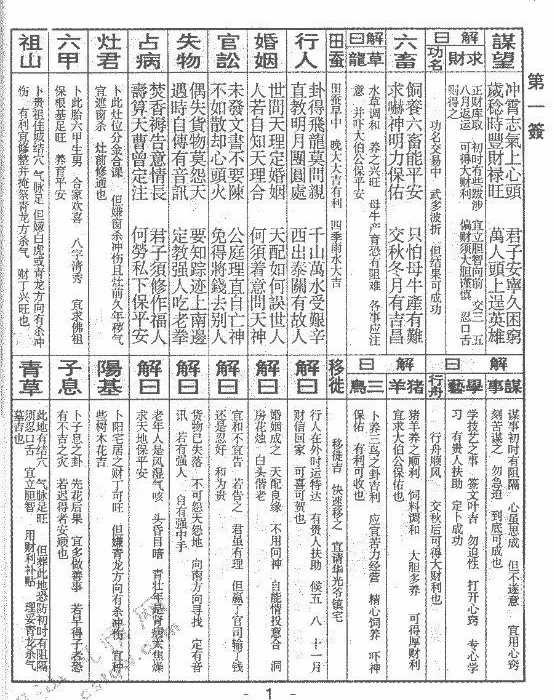 第一簽
謀望
冲霄志氣上心頭 君子安寧久困窮
歲稔時豐財祿旺 萬人頭上逞英雄
解曰
求財
正财库取 初时有些跋涉 宜立胆智向前 交三 五
八月返运 可得大财利 偏财须大胆谨慎 忍口舌
可得之
功名
功名交易中 武多波折 但结果可成功
六畜
飼養六畜能平安 只怕母牛產有難
求嚇神明力保佑 交秋冬月有吉昌
解曰
草龍
水草调和 养之兴旺 母牛产育恐有阻难 各事应注
意 并吓大伯公保佑平安
田蚕
田蚕早中 晚大大吉有利 四季雨水大吉
行人
卦得飛龍莫問親 千山萬水受艱辛
直教明月團圓處 西出泰關有故人
婚姻
世問天理定婚姻 天配如何誤世人
人若自知天理合 何須着意問天神
官訟
未發文書不要陳 公庭理直自亡神
不如散却心頭火 免得將錢去别人
失物
偶失貨物莫怨天 要知踪迹上南邊
遇時自傳有音訊 定教强人吃老拳
占病
焚香禱告意情長 君子須修作福人
壽算天曹曾定注 何勞私下保平安
灶君
卜此灶位分金合课 但嫌窗杀冲伤且灶前久年移气
宜遮窗杀 灶前修通也
六甲
卜此胎六甲生男 合家欢喜 八字清秀 宜求佛祖
保根基足旺 养育平安
祖山
卜贵祖佳城结穴 气脉足旺 但嫌白虎或青龙方向有杀冲
伤 有利宜修整并掩祭青龙方杀气 财丁兴旺也
解曰
謀事
谋事初时有阻隔 心虽思成 但不逢意 宜用心窍
刻苦谋之 勿急迫 到底可成也
學藝
学技艺之事 签文叶吉 勿迫性 打开心窍 专心学
习 有贵人扶助 定卜成功
行舟
行舟顺风 交秋后可得大财利也
解曰
猪羊
猪羊养之顺利 饲料调和 大胆多养 可得厚财利
宜求大伯公保佑也
三鳥
卜养三鸟之卦吉利 应宜苦力经营 精心饲养 吓神
保佑 有利可收也
移徙
移徙吉 快速移之 宜请华光爷镇宅
解曰
行人在外时运特达 有贵人扶助 候五 八 十一月
财信回家 可喜可贺也
解曰
婚姻成之 天配良缘 不用问神 自能情投意合 洞
房花烛 白头偕老
解曰
宜和不宜告 若告之 君虽有理 但赢了官司输了钱
还是忍好 和为贵
解曰
货物已失落 不可怨天怨地 向南方寻找 定有音
讯 若有强人 自有强中手
解曰
老年人是风湿气咳 头昏目暗 青壮年是肾病太焦燥
求天地保平安
陽基
卜阳宅居之财丁可旺 但嫌青龙方向有杀冲伤 宜种
些树木花吉
子息
卜子息之卦 先花后果 宜多做善事 若早得子者恐
有不吉之灾 若迟得者安顺也
青草
此地有结穴 气脉足旺 但葬此地恐防初时有阻隔
须忍口舌 宜立胆智 用财利补贴 理妥青龙杀气
墓吉也
- 1 -